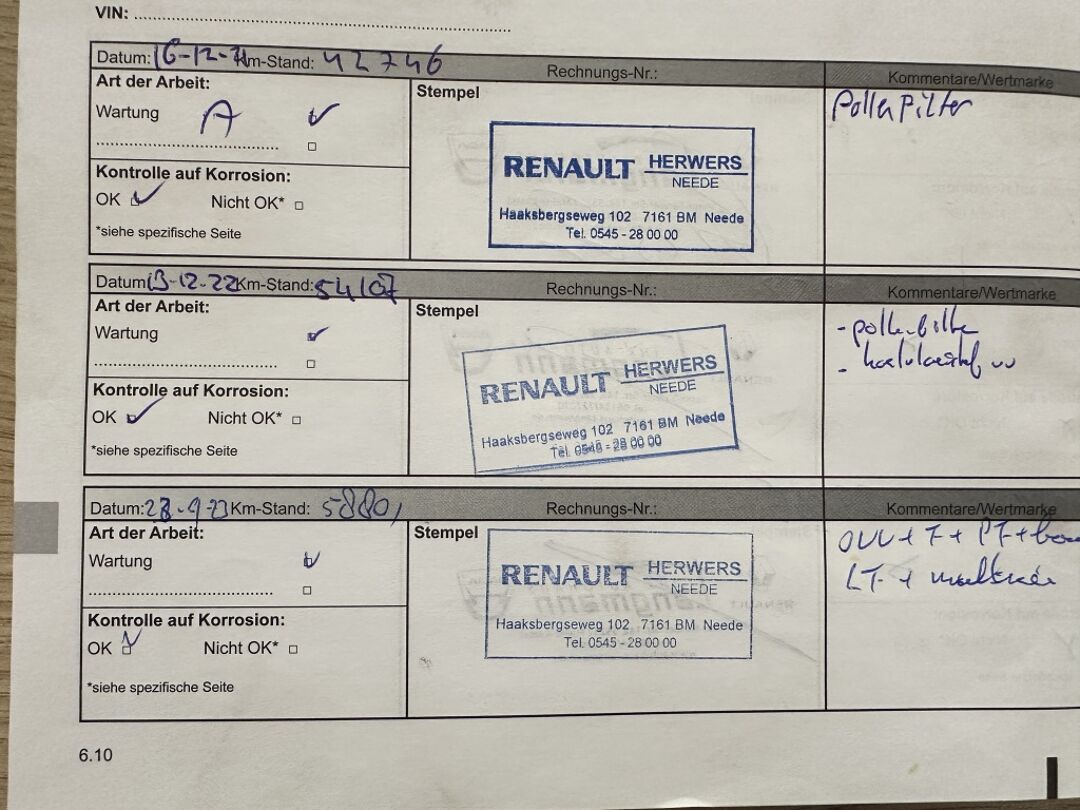 VIN: ........................................
Datum: 16-12-21 Km-Stand: 42746 Rechnungs-Nr.: Kommentare/Wertmarke
Art der Arbeit:
Wartung A
Kontrolle auf Korrosion:
OK Nicht OK*
*siehe spezifische Seite
Stempel
RENAULT HERWERS
NEEDE
Haaksbergseweg 102 7161 BM Neede
Tel. 0545 - 28 00 00
Pollenfilter
Datum: 13-12-22 Km-Stand: 54107 Rechnungs-Nr.: Kommentare/Wertmarke
Art der Arbeit:
Wartung
Kontrolle auf Korrosion:
OK Nicht OK*
*siehe spezifische Seite
Stempel
RENAULT HERWERS
NEEDE
Haaksbergseweg 102 7161 BM Neede
Tel. 0545 - 28 00 00
- pollenfilter
-
Datum: Km-Stand: Rechnungs-Nr.: Kommentare/Wertmarke
Art der Arbeit:
Wartung
Kontrolle auf Korrosion:
OK Nicht OK*
*siehe spezifische Seite
Stempel
RENAULT HERWERS
NEEDE
Haaksbergseweg 102 7161 BM Neede
Tel. 0545 - 28 00 00
+ F + PF +
LT +
6.10